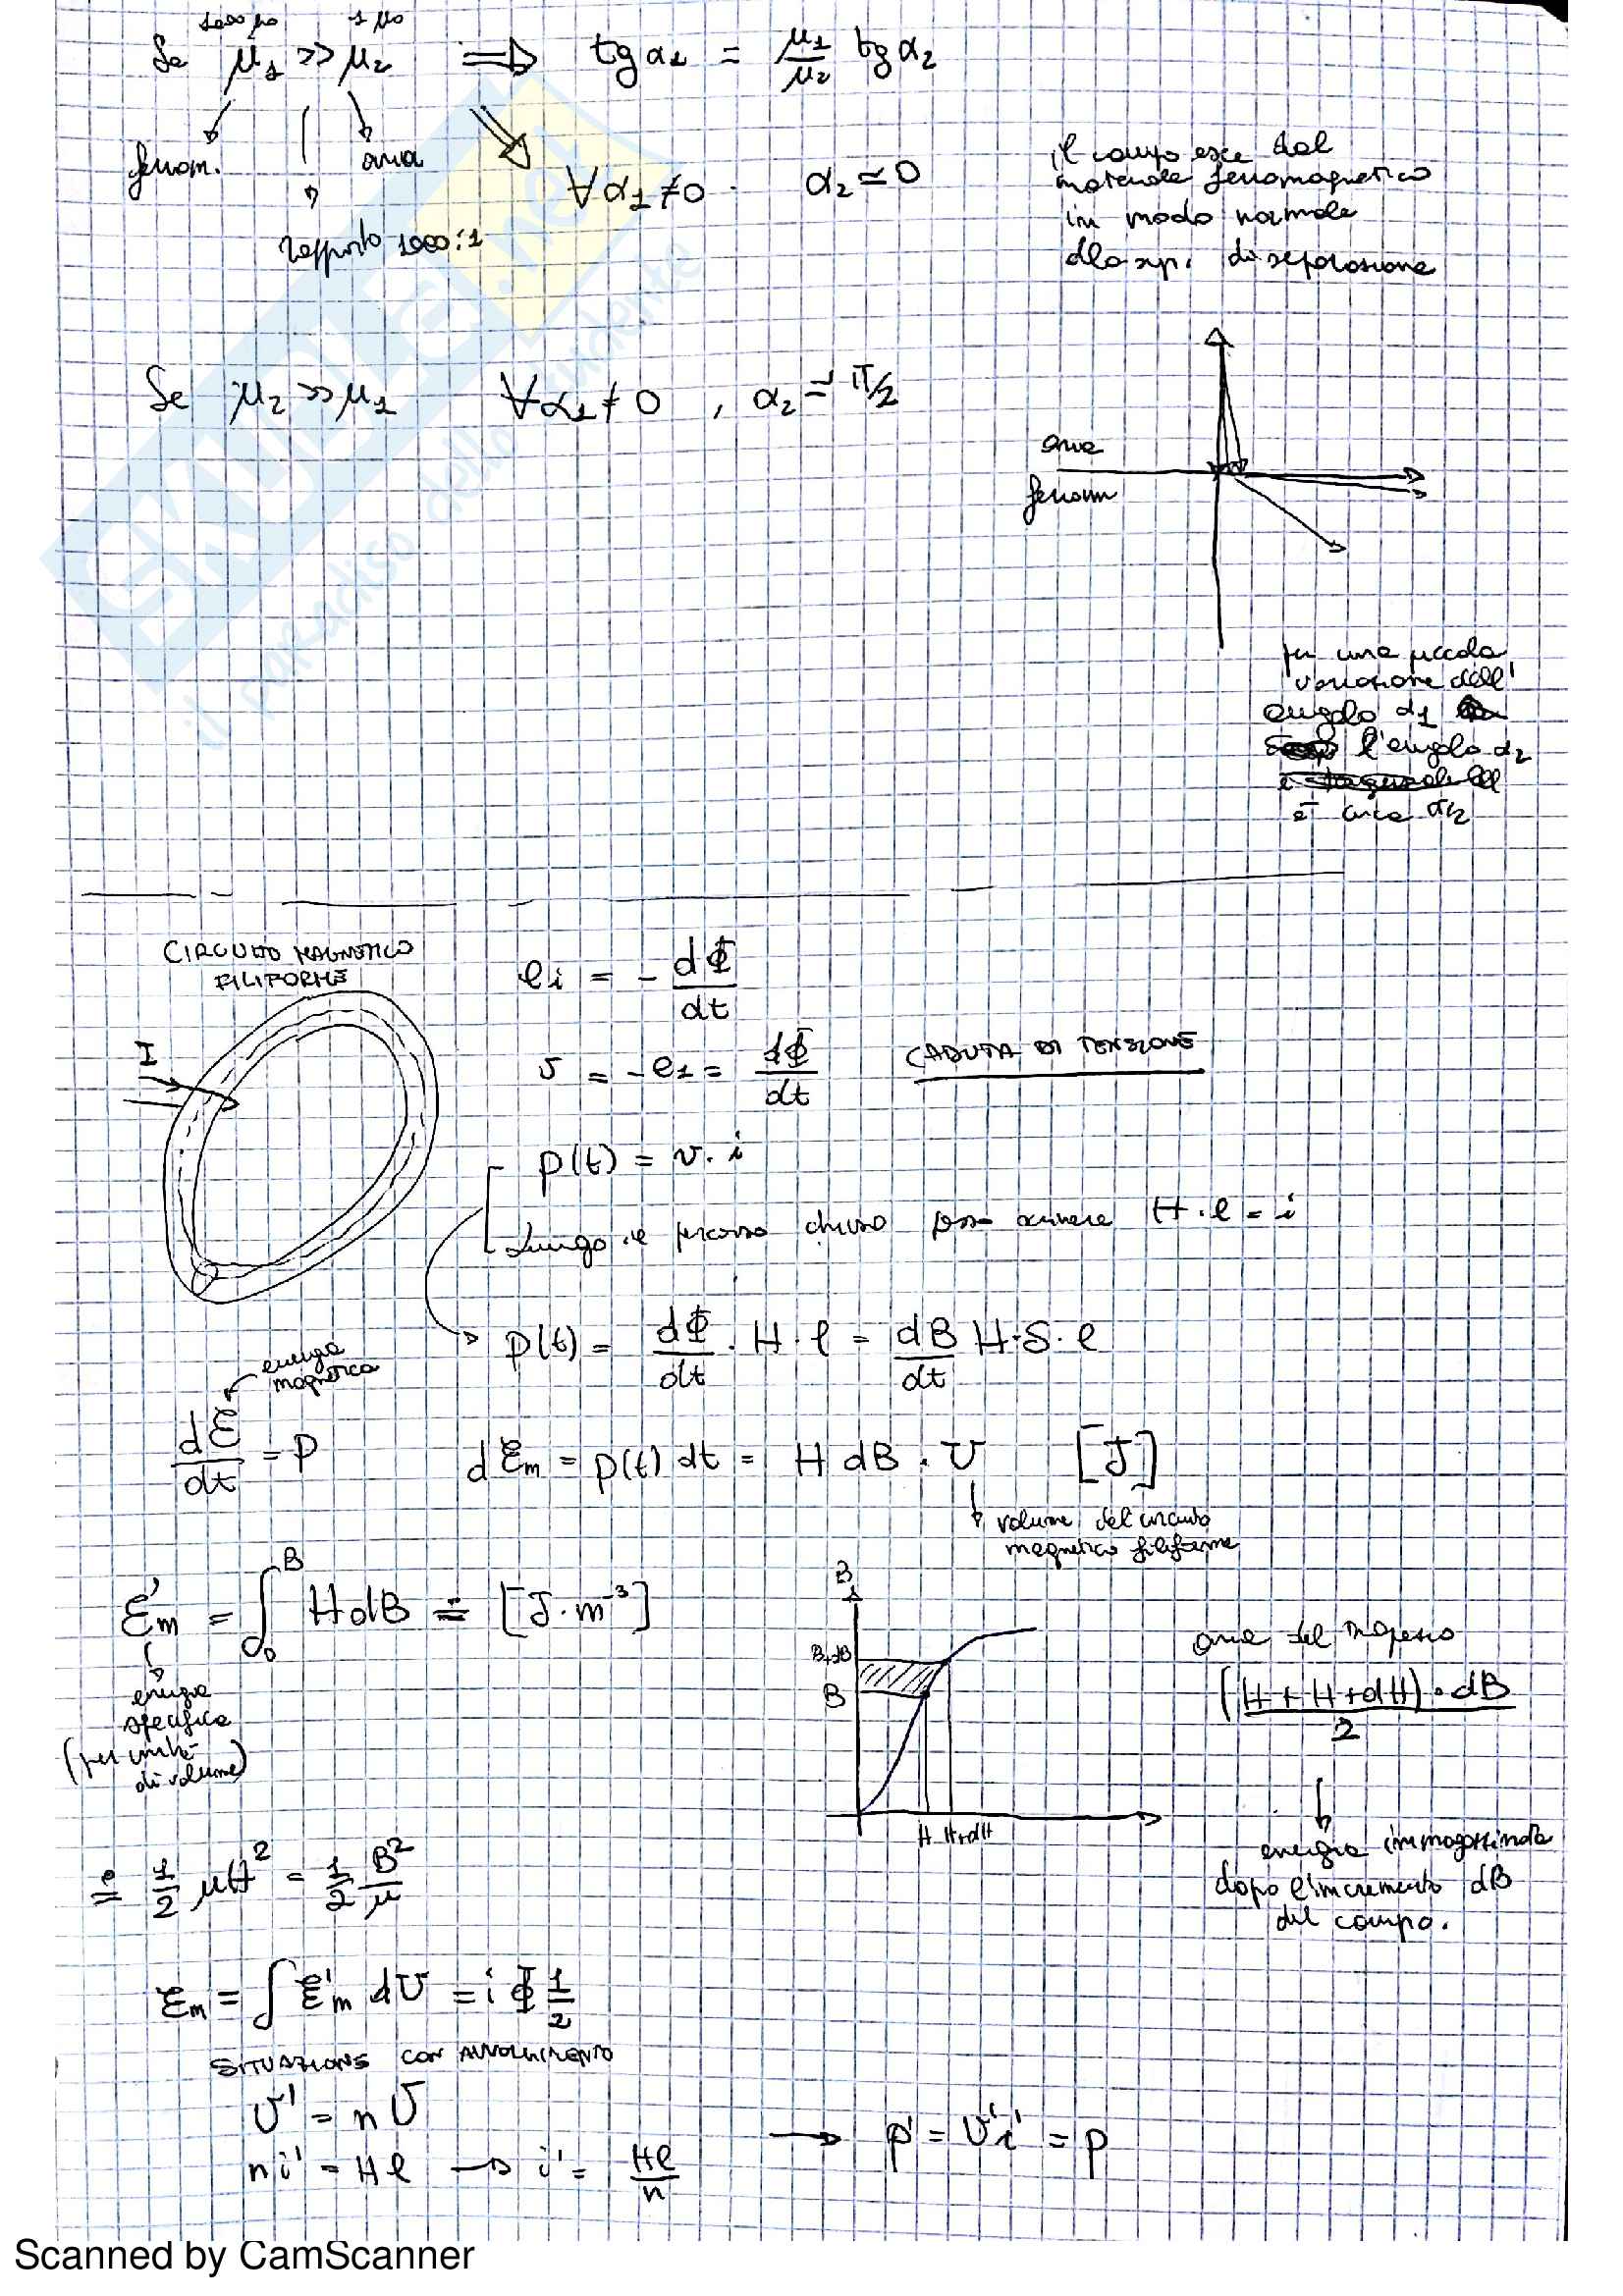 1000 μ0 1 μ0
Se μ1 >> μ2 ⇒ tg α1 = μ1/μ2 tg α2
ferrom. aria
rapporto 1000:1
∀ α1 ≠ 0 . α2 ≃ 0
il campo esce dal
materiale ferromagnetico
in modo normale
alla sup. di separazione
Se μ2 >> μ1 ∀ α1 ≠ 0 , α2 = π/2
aria
ferrom
per una piccola
variazione dell'
angolo α1
l'angolo α2
è circa π/2
CIRCUITO MAGNETICO
FILIFORME
I
ei = - dΦ/dt
v = -e1 = dΦ/dt CADUTA DI TENSIONE
p(t) = v · i
Lungo il percorso chiuso posso scrivere H · l = i
p(t) = dΦ/dt · H · l = dB/dt H · S · l
energia
magnetica
dƐ/dt = p dƐm = p(t) dt = H dB · V [J]
volume del circuito
magnetico filiforme
Ɛ'm = ∫0B H dB ≐ [J · m-3]
energia
specifica
(per unità
di volume)
B
B+dB
B
H H+dH
area del trapezio
(H + H + dH) · dB
2
energia immagazzinata
dopo l'incremento dB
del campo.
= 1/2 μH2 = 1/2 B2/μ
Ɛm = ∫ Ɛ'm dV = i Φ 1/2
SITUAZIONE CON AVVOLGIMENTO
v' = n v
n i' = H l → i' = Hl/n → p' = v' i' = p
SKUOLA.net
il paradiso dello studente
Scanned by CamScanner